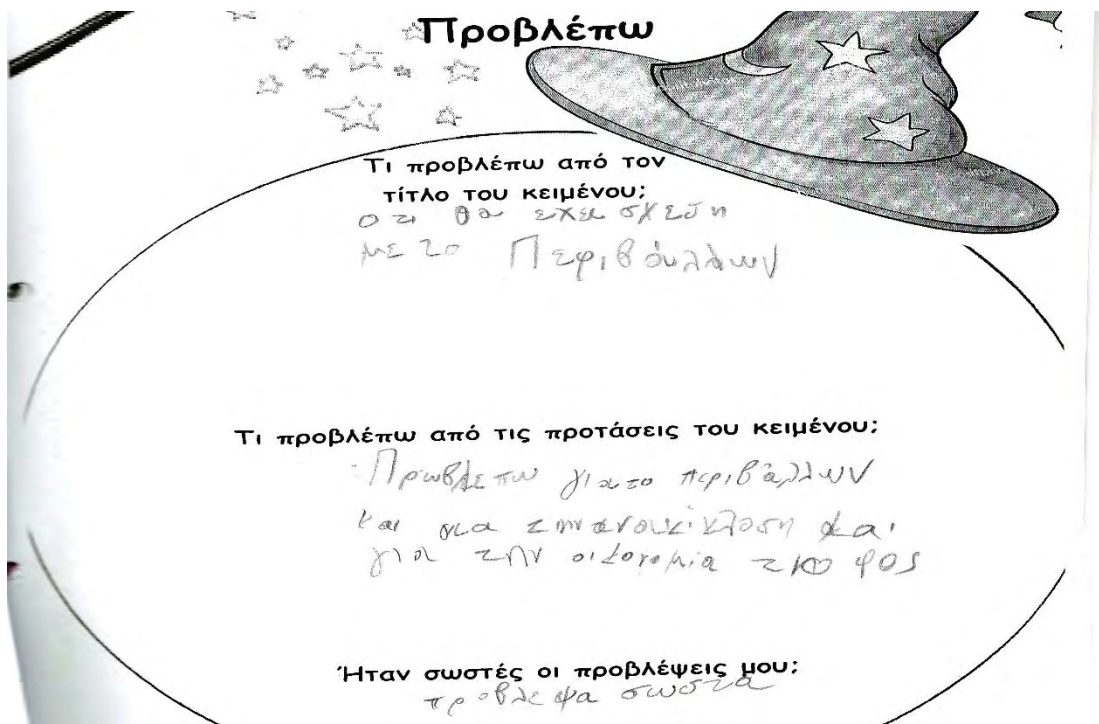 Προβλέπω
Τι προβλέπω από τον
τίτλο του κειμένου;
οτι θα εχει σχεση
με το Περιβάλλων
Τι προβλέπω από τις προτάσεις του κειμένου;
Πρωβλεπω για το περιβάλλων
και για την ανακίκλοση και
για την οικονομία στο φος
Ήταν σωστές οι προβλέψεις μου;
προβλεψα σωστα